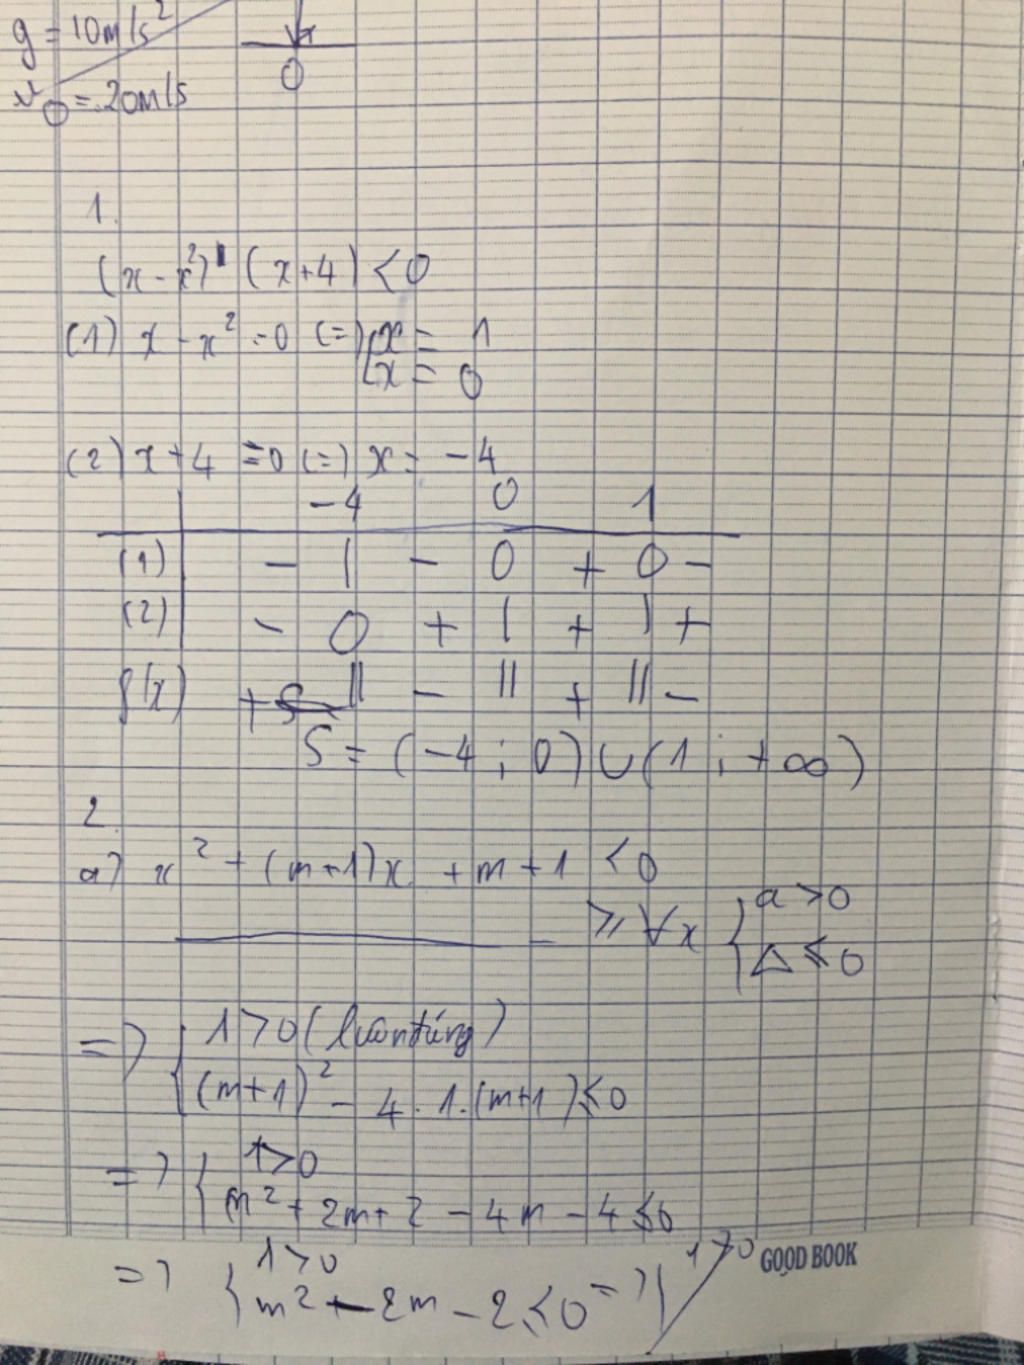 g = 10m/s²
v₀ = 20m/s
O
1.
(x - x²) (x+4) < 0
(1) x - x² = 0 (=) [x = 1
[x = 0
(2) x + 4 = 0 (=) x = -4
-4 0 1
(1) - | - 0 + 0 -
(2) - 0 + | + | +
f(x) + || - || + || -
S = (-4; 0) ∪ (1; +∞)
2.
a) x² + (m+1)x + m + 1 < 0
⩾ ∀x { a > 0
Δ ⩽ 0
=> { 1 > 0 (luôn đúng)
(m+1)² - 4.1.(m+1) ⩽ 0
=> { 1 > 0
m² + 2m + 2 - 4m - 4 ⩽ 0
=> { 1 > 0
m² - 2m - 2 ⩽ 0 => { 1 > 0
GOOD BOOK